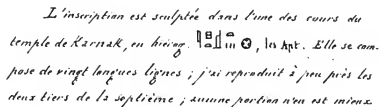 L'inscription est sculptée dans l'une des cours du
temple de Karnak, en hiérog. , les Apt. Elle se com-
pose de vingt longues lignes ; j'ai reproduit à peu près les
deux tiers de la septième ; aucune portion n'en est mieux